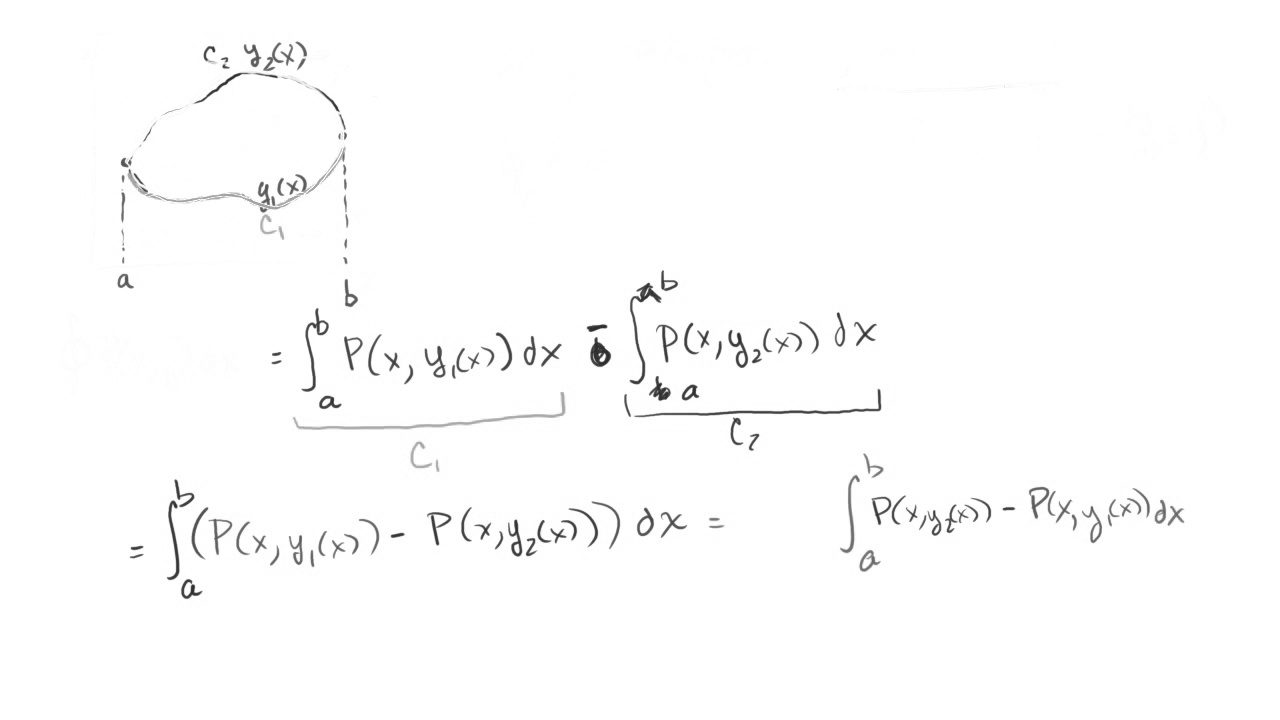 C₂ y₂(x)
y₁(x)
C₁
a
b
= ∫ₐᵇ P(x, y₁(x)) dx - ∫ₐᵇ P(x, y₂(x)) dx
C₁ C₂
= ∫ₐᵇ (P(x, y₁(x)) - P(x, y₂(x))) dx = ∫ₐᵇ P(x, y₂(x)) - P(x, y₁(x)) dx